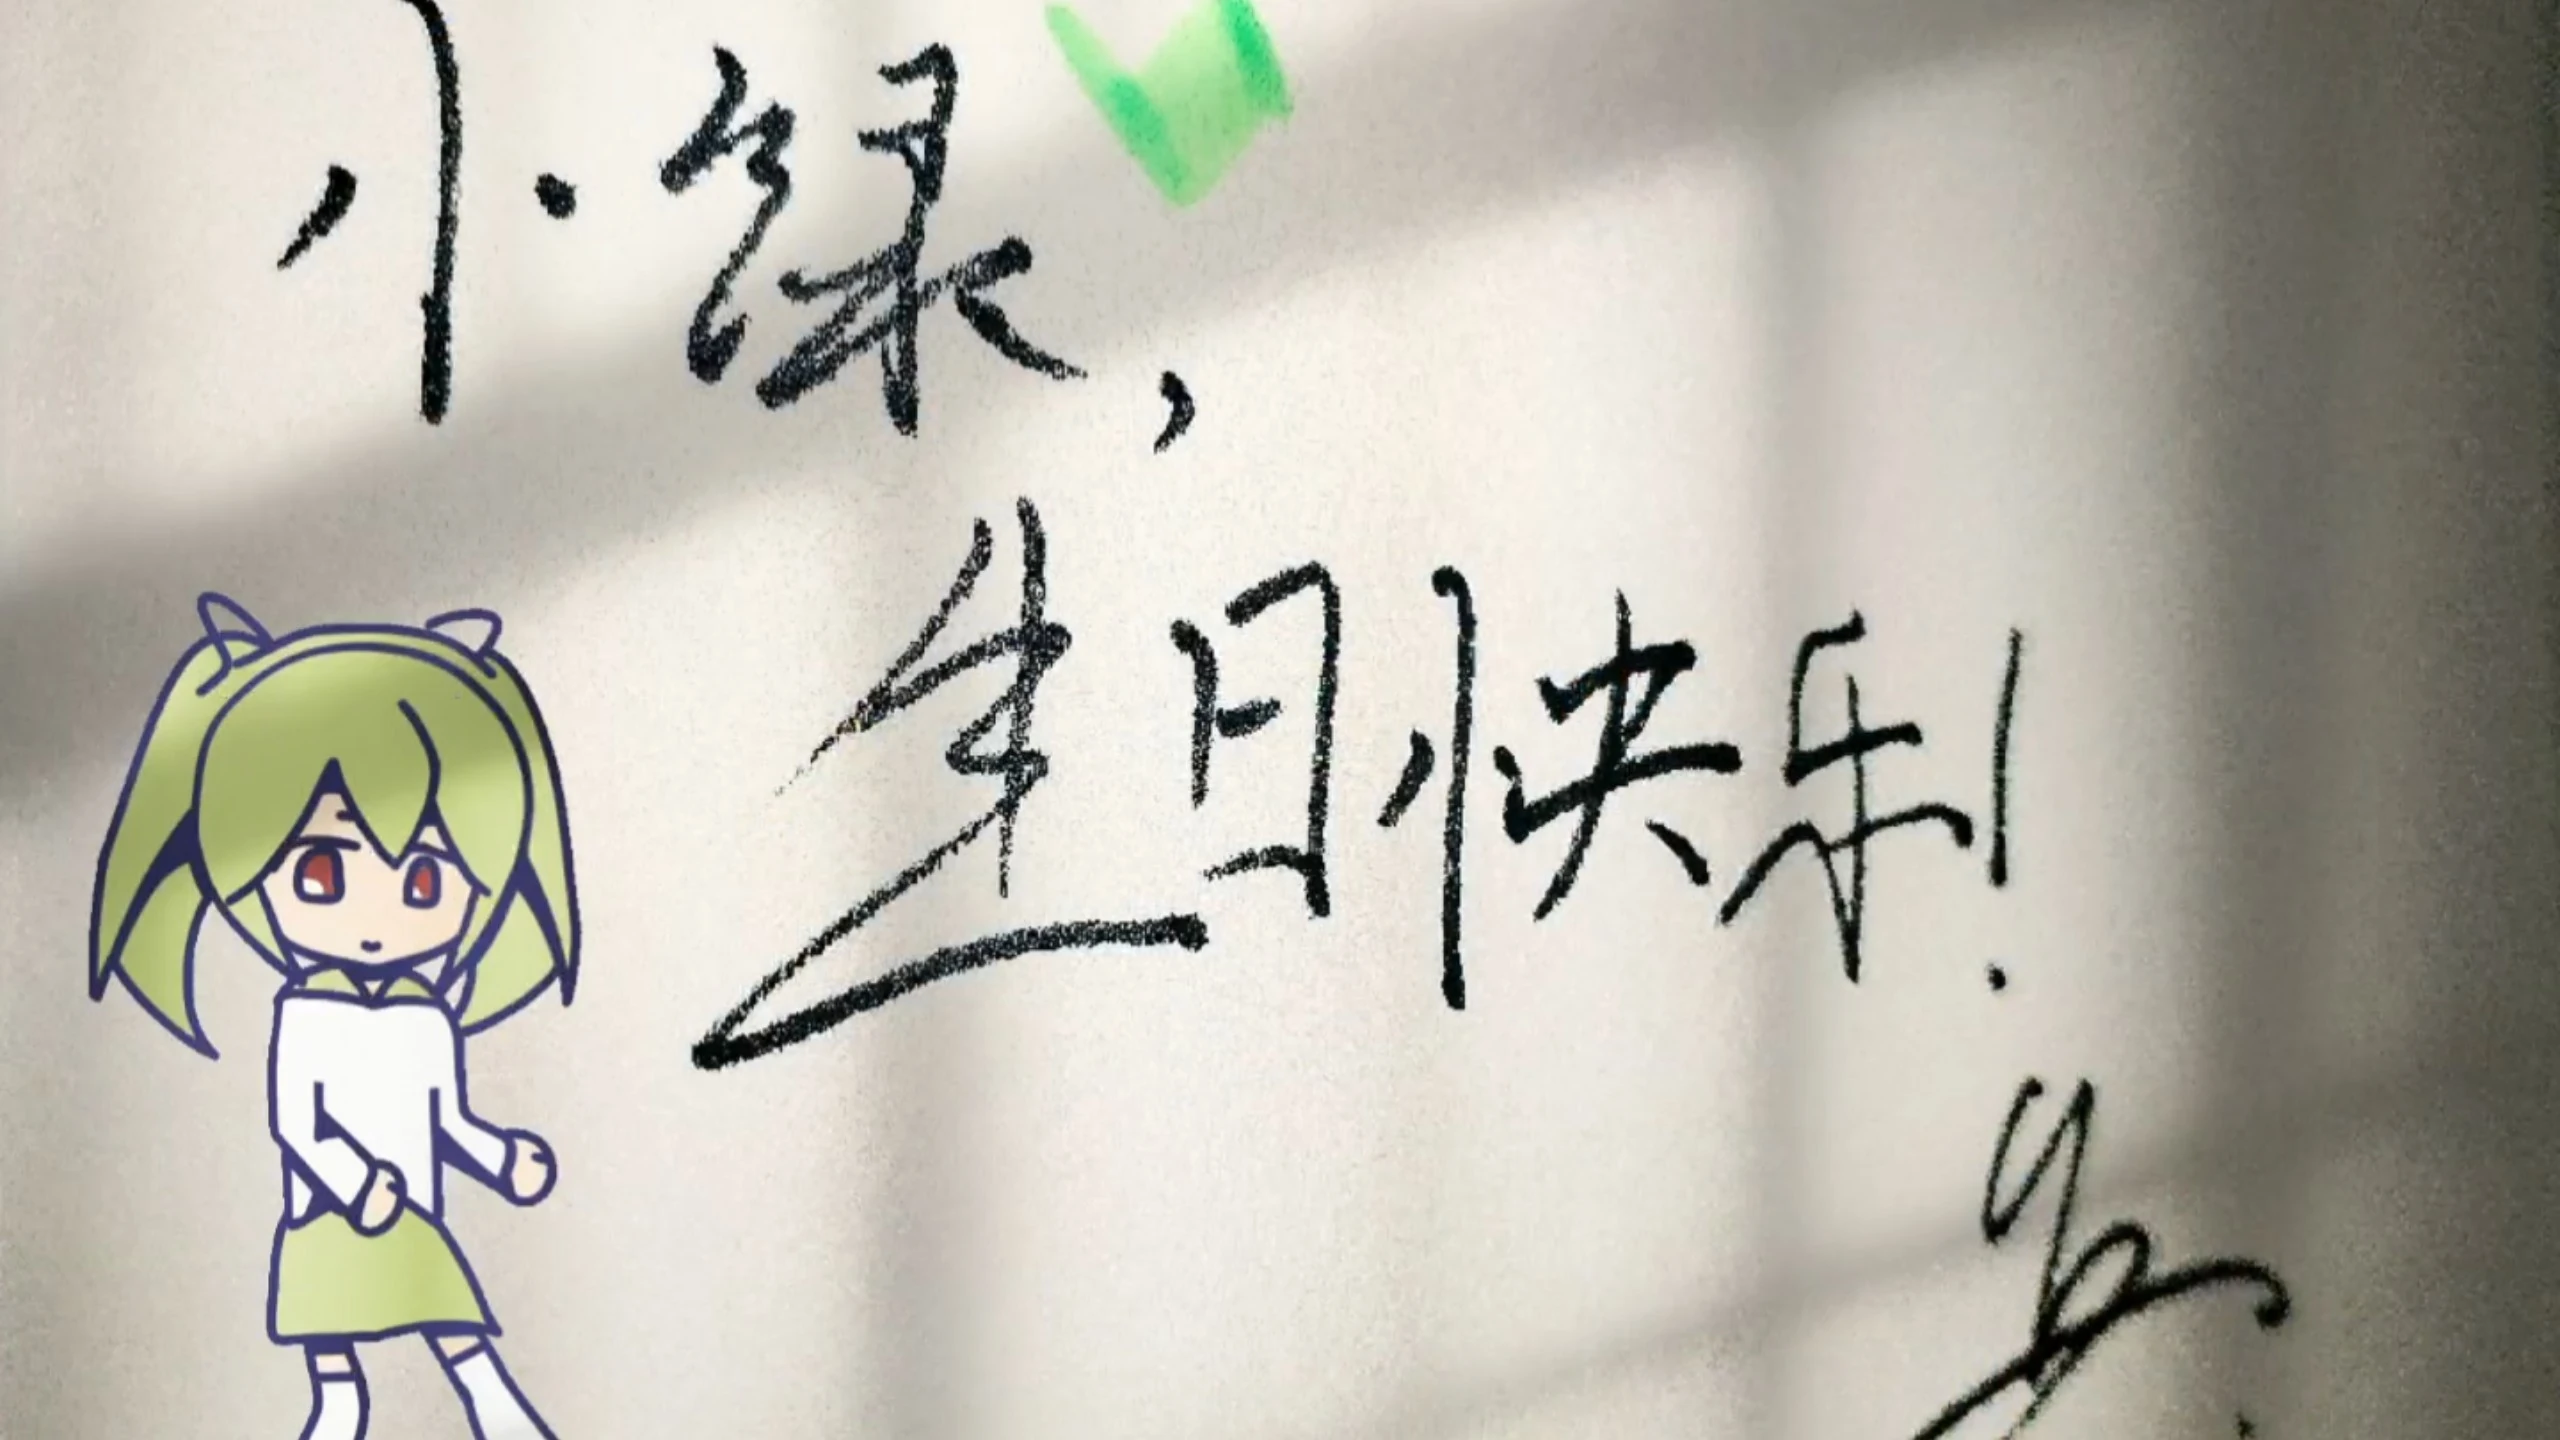 小绿，
生日快乐！